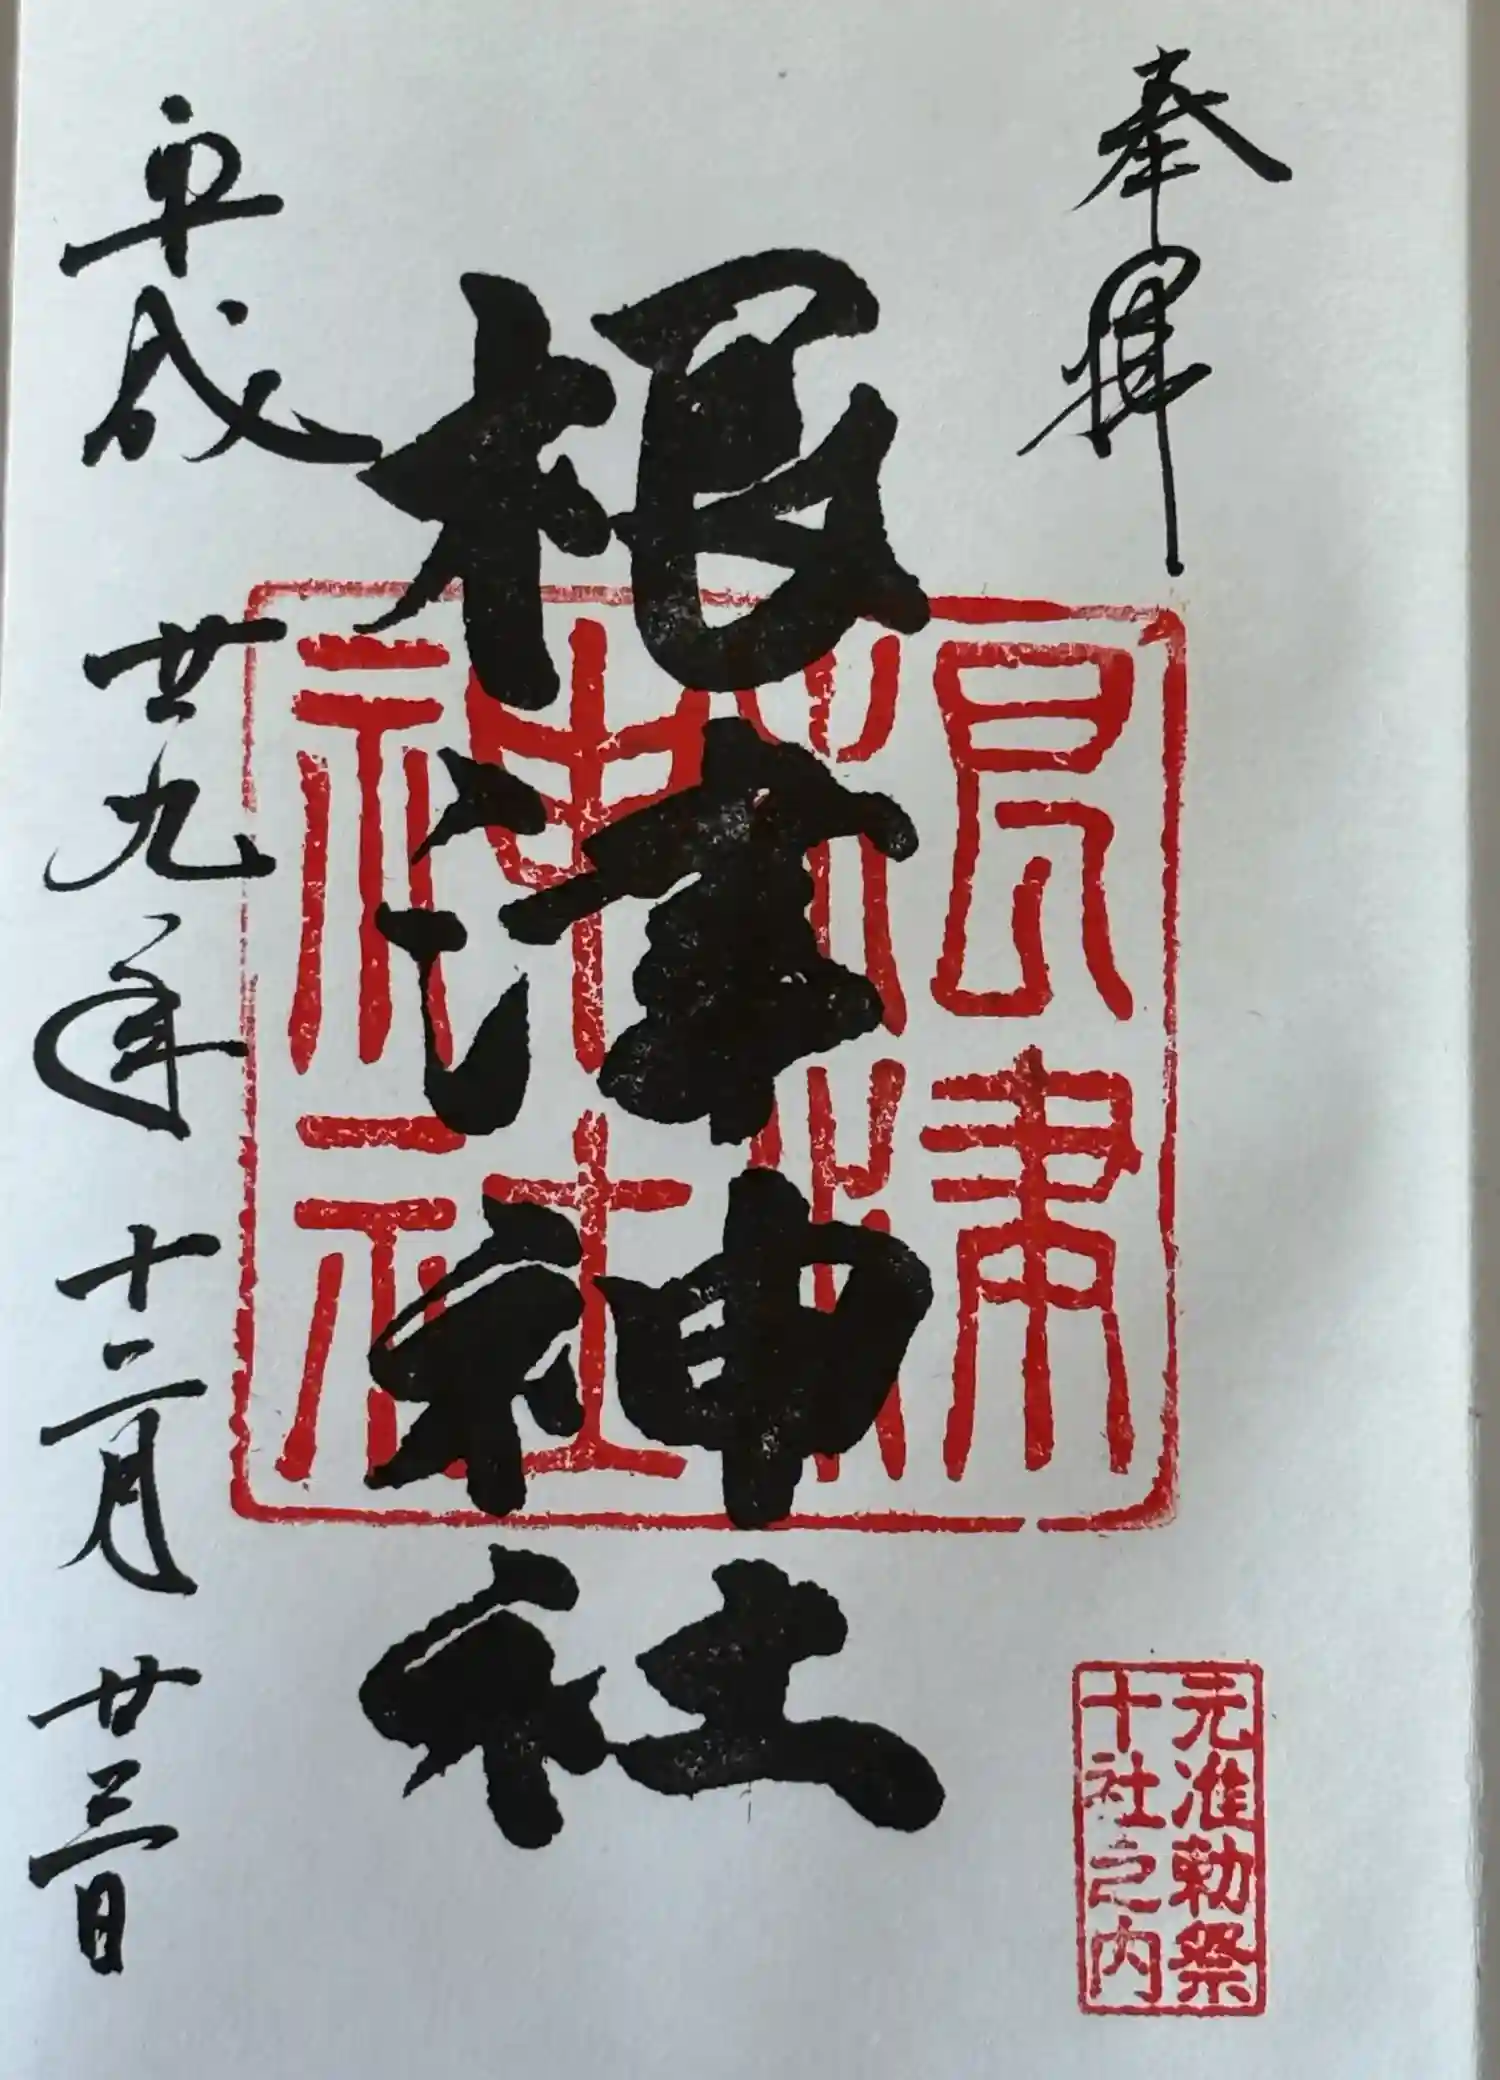 奉拝
根津神社
根津
神社
平成廿九年十二月廿三日
元准勅祭
十社之内